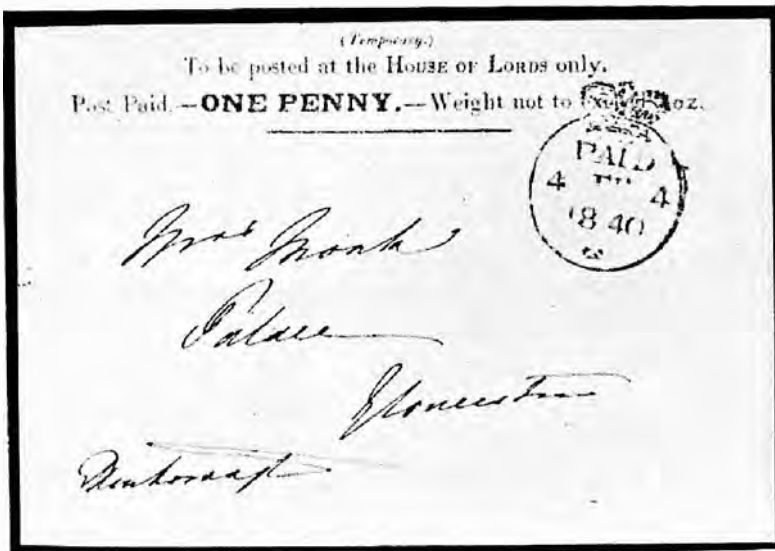 (Temporary.)
To be posted at the HOUSE OF LORDS only.
Post Paid.—ONE PENNY.—Weight not to Exceed oz.
PAID
4 4
1840
Mrs Monk
Palace
Gloucester